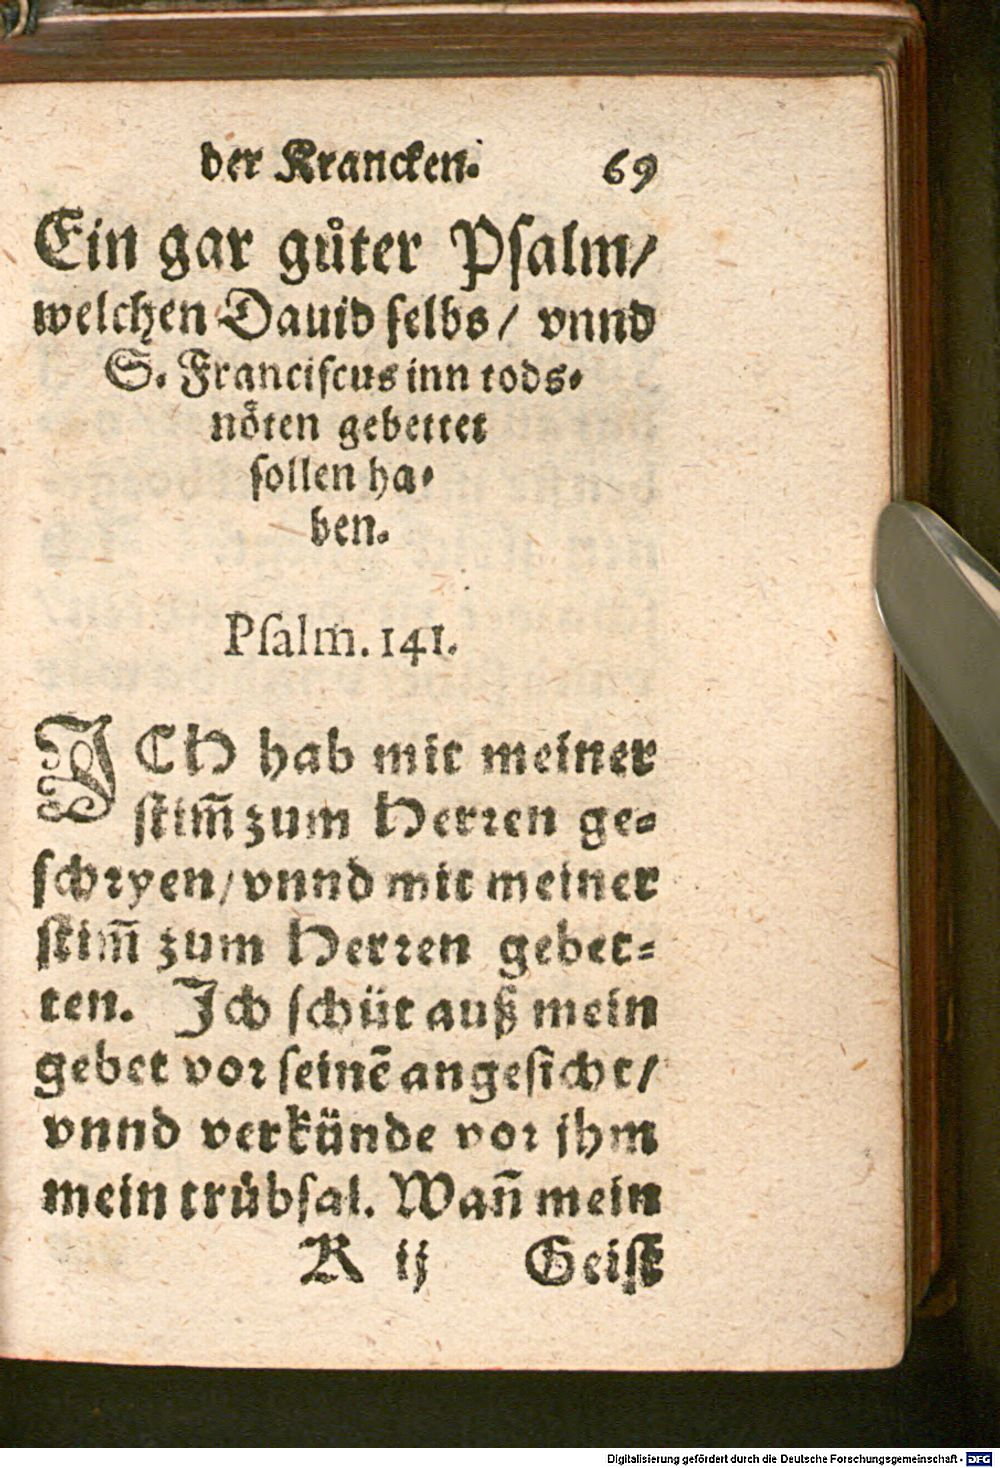 der Krancken. 69
Ein gar gůter Psalm/
welchen Dauid selbs/ vnnd
S. Franciscus inn tods-
nöten gebettet
sollen ha-
ben.
Psalm. 141.
ICH hab mit meiner
stim̃ zum Herren ge-
schryen/ vnnd mit meiner
stim̃ zum Herren gebet-
ten. Ich schüt auß mein
gebet vor seinẽ angesicht/
vnnd verkünde vor jhm
mein trübsal. Wañ mein
K ij Geist
Digitalisierung gefördert durch die Deutsche Forschungsgemeinschaft - DFG